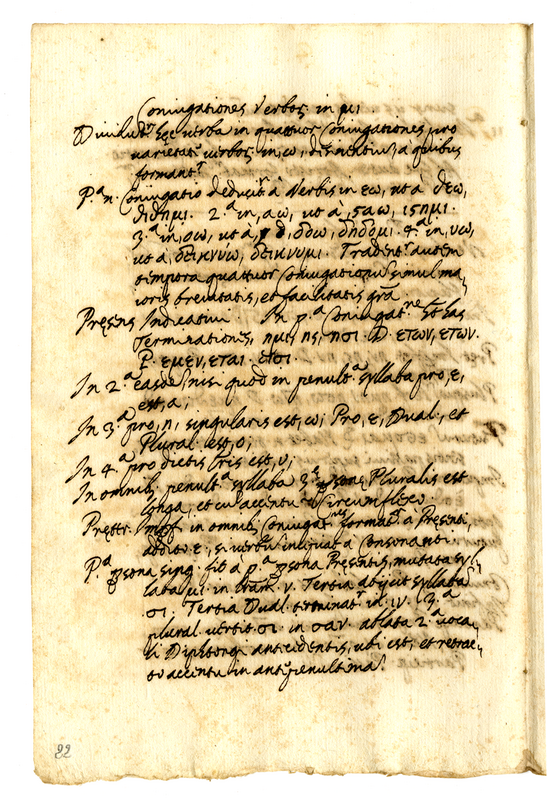 Coniugationes Verboꝝ in μι
Diuidunt.r hęc uerba in quattuor Coniugationes, pro
uarietate uerboꝝ in, ω, à quibus
formant.r
P.a n. Coniugatio deducit.r à Verbis in εω, ut à θεω,
τιθημι. 2.a in, αω, ut à, ςαω, ιςημι.
3.a in, οω, ut à, δοω, διδομι. 4.a in, υω,
ut à, δεικνύω, δεικνυμι. Tradent.r autem
tempora quattuor Coniugationũ simul ma,
ioris breuitatis, et facilitatis grã.
Pręsens Indicatiui. In p.a Coniugat.ne
Terminationes, ημι, ης, ησι. D. ετων, ετων.
P. εμεν, εται. εισι.
In 2.a easdẽ nisi quod in penult.a syllaba pro, ε,
est, α;
In 3.a pro, η, singularis est, ω; Pro, ε, Dual., et
Plural. est, ο;
In 4.a pro dictis est, υ;
In omnibꝰ penult.a syllaba 3.ę ꝑsonę Pluralis est
longa, et cũ accentu Circumflexo.
Prętẽr. Impf. in omnibꝰ Coniugat. format.r à Pręsenti,
addit.r ε, si uerbũ incipiat à Consonant.
P.a ꝑsona sing. fit à p.a ꝑsona Pręsentis, mutata syl,
laba μι in ν. Tertia abijcit syllabã
σι. Tertia Dual. terminat.r in, ην. 3.a
plural. uertit σι in σαν ablata 2.a uoca,
li Diphtongi antecedentis, ubi est, et retrac,
to accentu in antepenultimã.
22